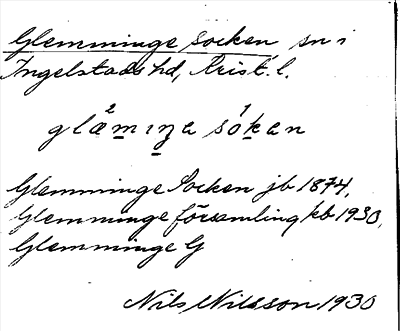 Glemminge socken, sn i
Ingelstads hd, Krist. l.
glæmiŋe sokan
Glemminge Socken jb 1874,
Glemminge församling kb 1930,
Glemminge G
Nils Nilsson 1930